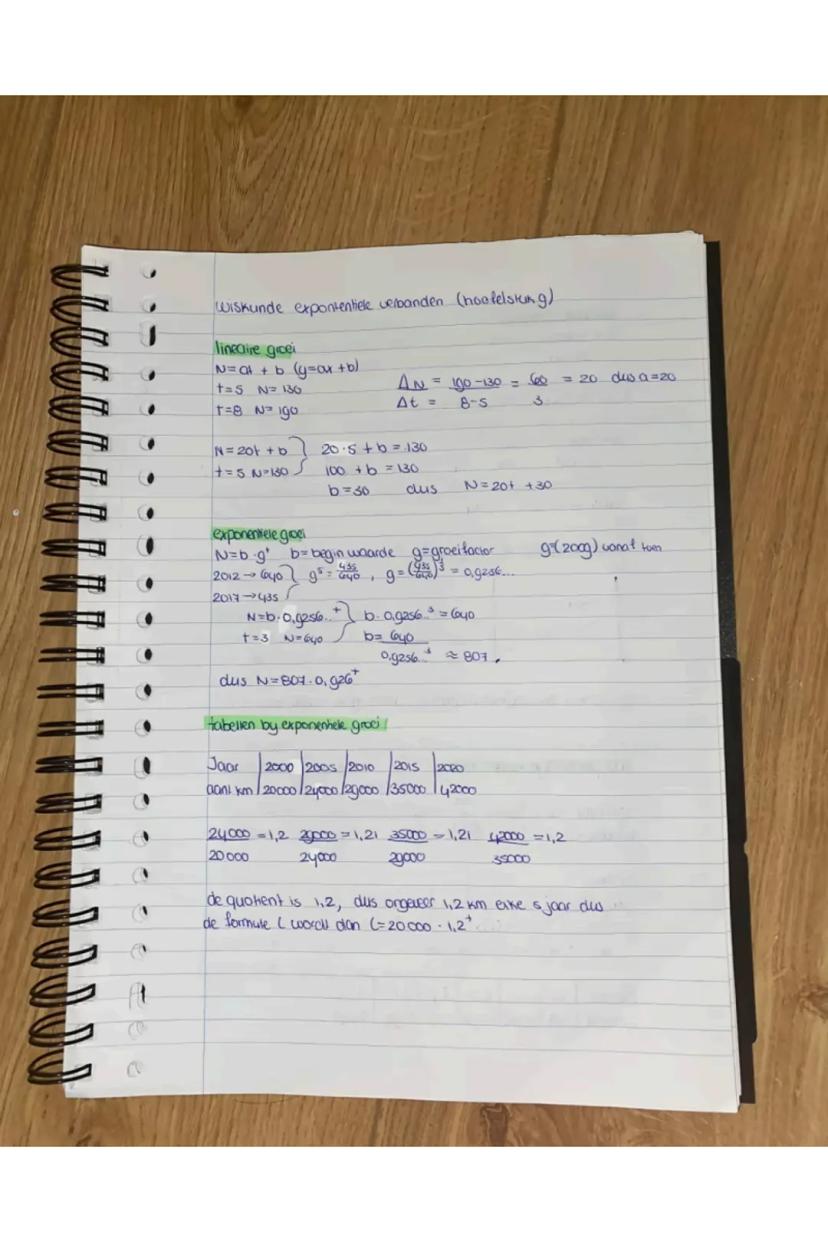 wiskunde exponentiele verbanden (hoofdstuk 9)
lineaire groei
N=at + b (y=ax+b)
t=5 N=130
t=8 N=190
ΔN = 190-130 = 60 = 20 dus a=20
Δt = 8-5 3
N=20t + b } 20·5 + b = 130
t=5 N=130 100 + b = 130
b=30 dus N=20t +30
exponentiele groei
N=b·gᵗ b=begin waarde g=groeifactor g=(2009) vanaf toen
2012→640 } g⁵ = 435/640 , g= (435/640) = 0,9256...
2017→435
N=b·0,9256..ᵗ } b·0,9256..³ = 640
t=3 N=640 b= 640
0,9256..³ ≈ 807.
dus N=807·0,926ᵗ
tabellen by exponentiele groei
Jaar | 2000 | 2005 | 2010 | 2015 | 2020
aant km | 20000 | 24000 | 29000 | 35000 | 42000
24000 = 1,2 29000 = 1,21 35000 = 1,21 42000 = 1,2
20000 24000 29000 35000
de quotient is 1,2, dus ongeveer 1,2 km elke 5 jaar dus
de formule L wordt dan L=20000·1,2ᵗ